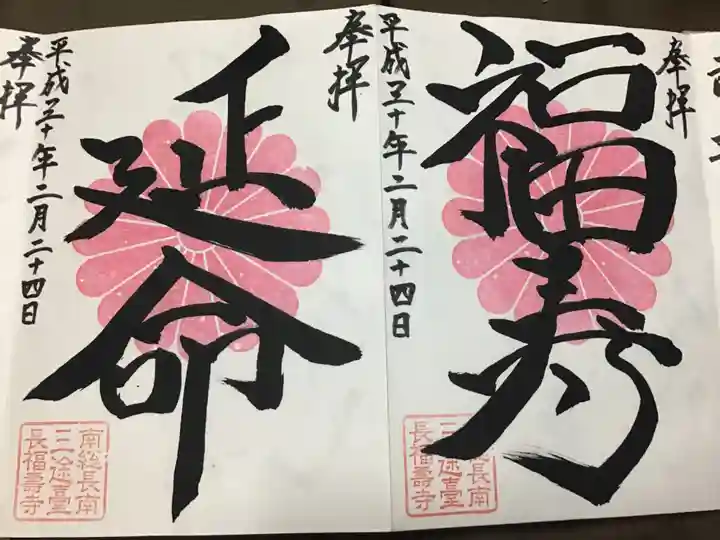 奉拝
福寿
平成三十年二月二十四日
南総長南
三途臺
長福壽寺
奉拝
延命
平成三十年二月二十四日
南総長南
三途臺
長福壽寺
奉拝